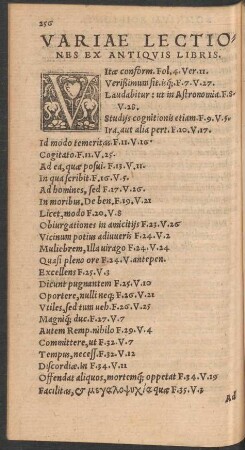 256
VARIAE LECTIO
NES EX ANTIQVIS LIBRIS.
VItæ conform. Fol. 4. Ver. 11.
Verissimum sit. isq;. F. 7. V. 27.
Laudabitur: ut in Astronomia. F. 8.
V. 28.
Studijs cognitionis etiam. F. 9. V. 5.
Ira, aut alia pert. F. 10. V. 17.
Id modo temeritas. F. 11. V. 16.
Cogitato. F. 11. V. 25.
Ad ea, quæ posui. F. 13. V. 11.
In qua scribit. F. 16. V. 5.
Ad homines, sed F. 17. V. 26.
In moribus, De ben. F. 19. V. 21
Licet, modo F. 20. V. 8
Obiurgationes in amicitijs F. 23. V. 26
Vicinum potius adiuueris F. 24. V. 2
Muliebrem, Illa uirago F. 24. V. 24
Quasi pleno ore F. 24. V. antepen.
Excellens F. 25. V. 3
Dicunt pugnantem F. 25. V. 10
Oportere, nulli neq; F. 26. V. 21
Vtiles, sed tum ueh. F. 26. V. 21
Magniq; duc. F. 27. V. 7
Autem Remp. nihilo F. 29. V. 4
Committere, ut F. 32. V. 7
Tempus, necess. F. 32. V. 12
Discordiæ. in F. 34. V. 11
Offendat aliquos, mortemq; oppetat F. 34. V. 19
Facilitas, & μεγαλοψυχία quæ F. 35. V. 3
Ad